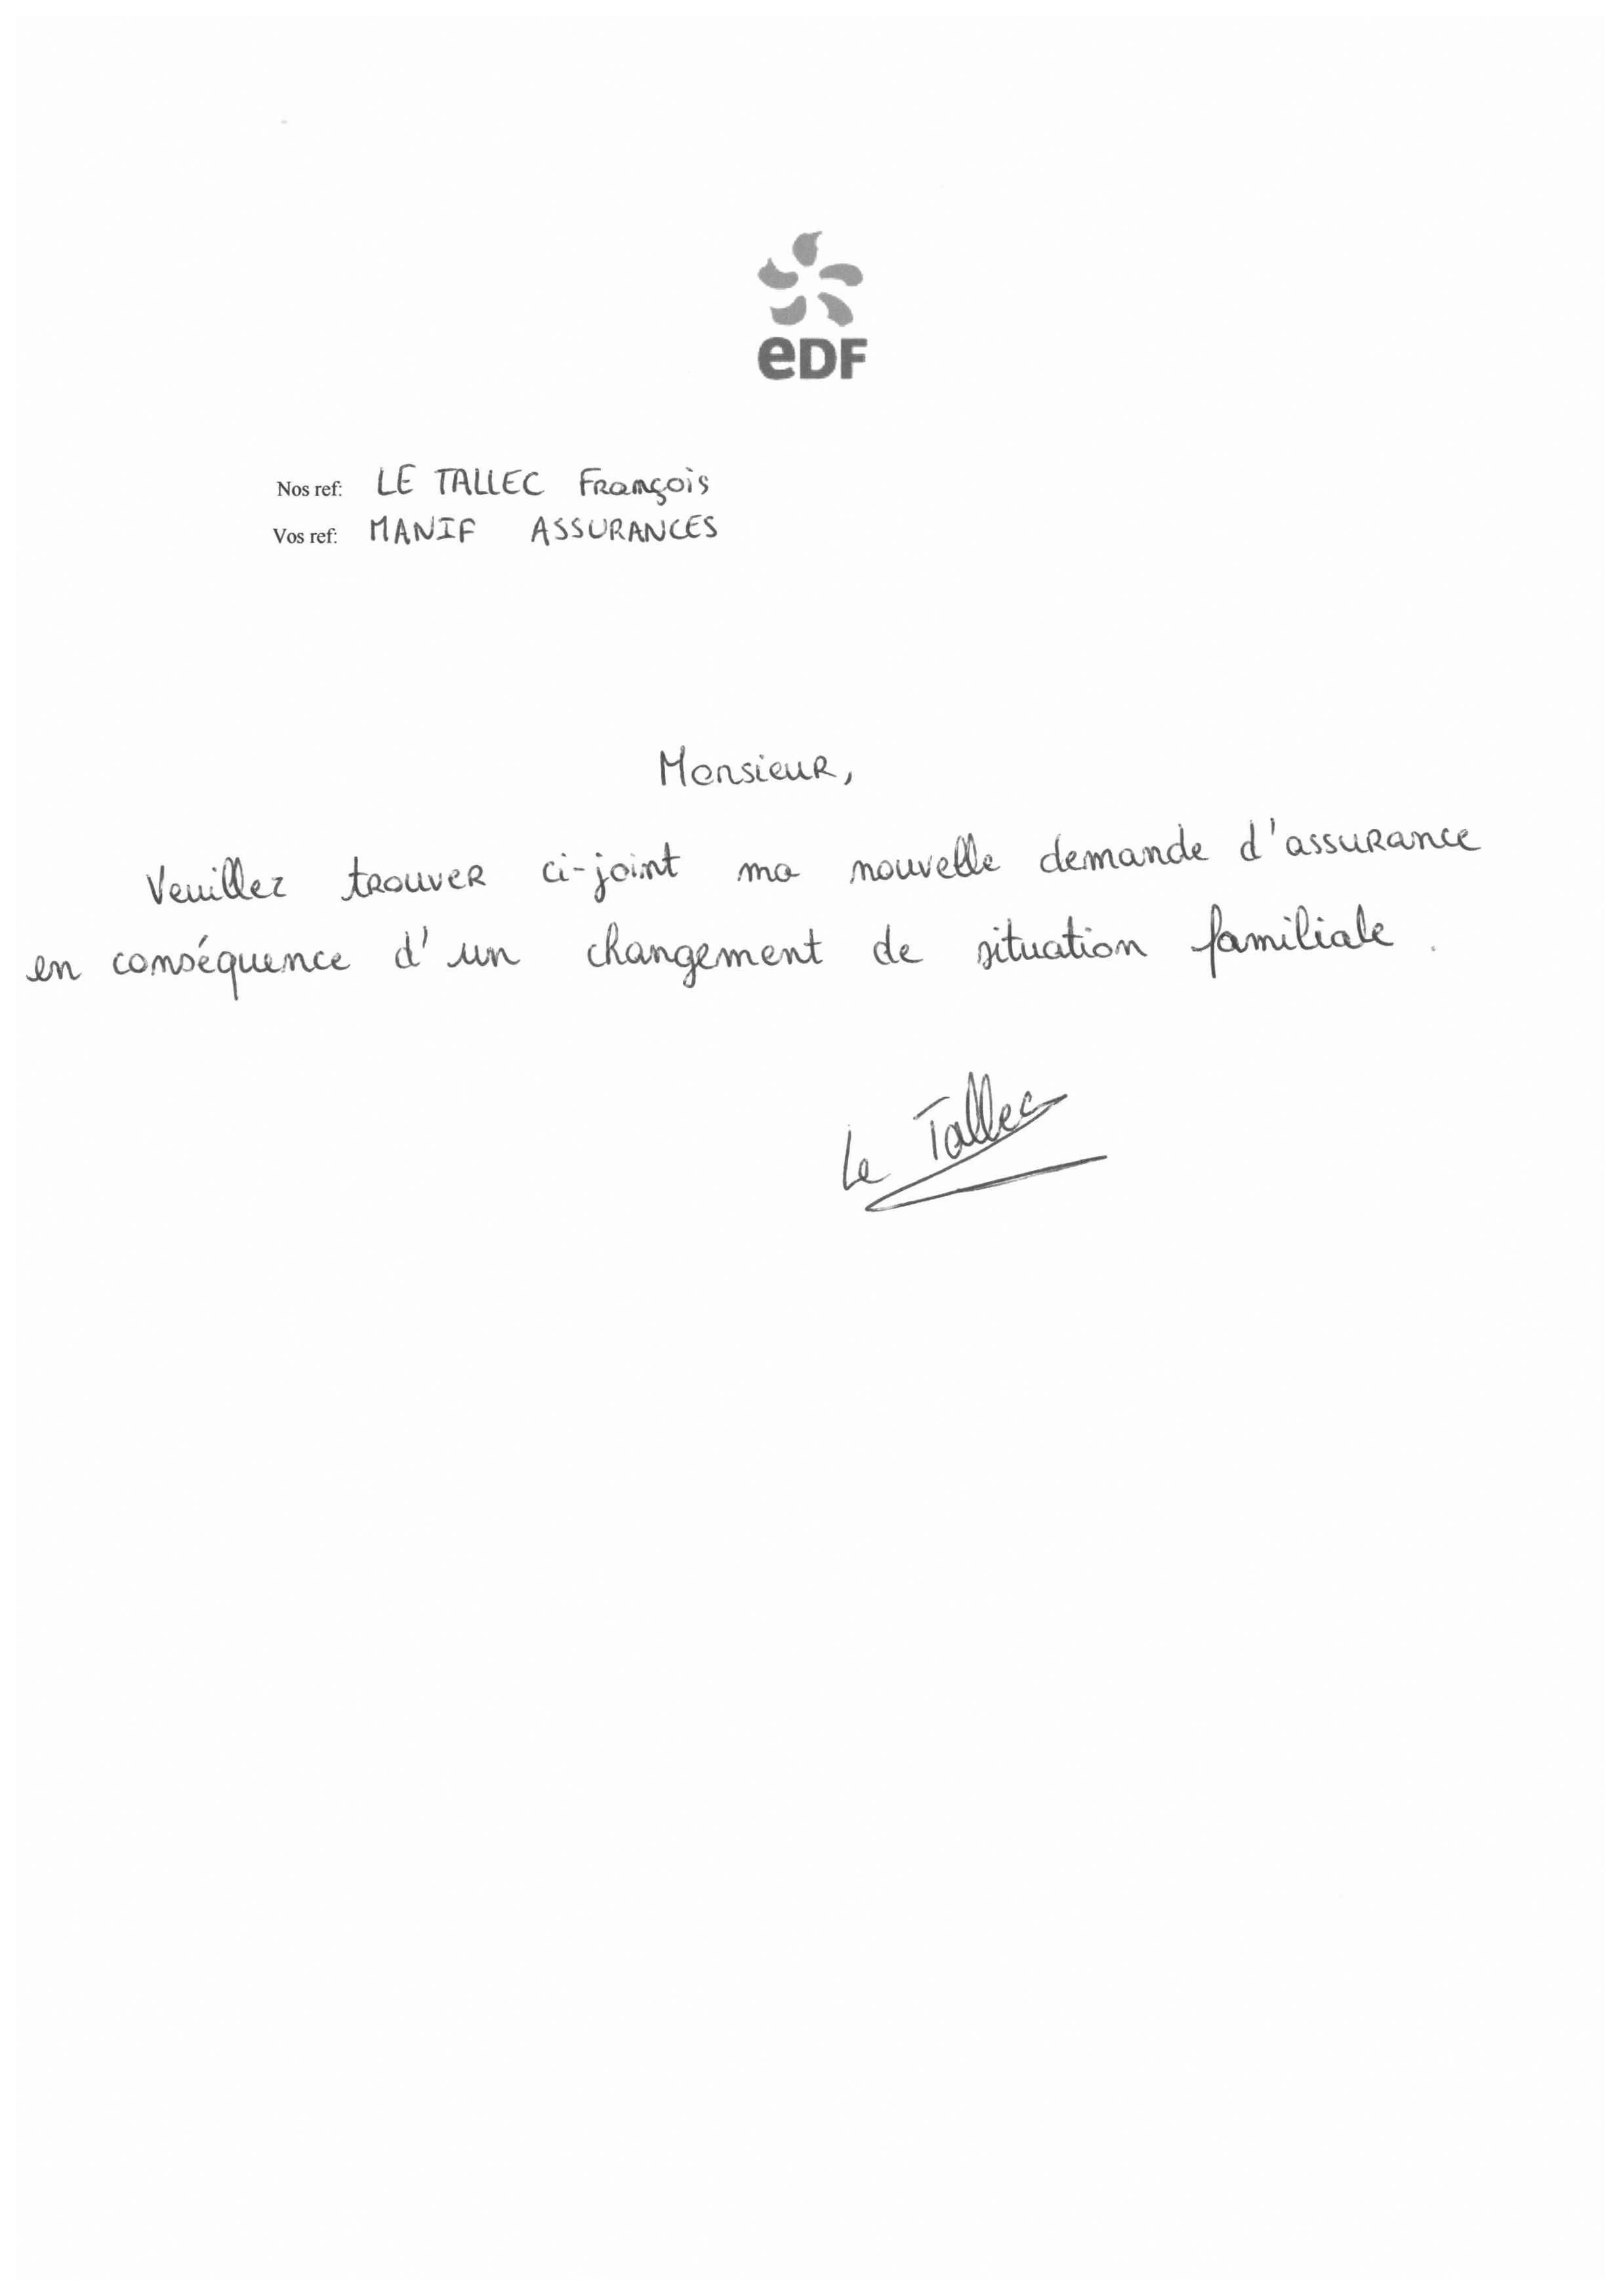 eDF
Nos ref: LE TALLEC François
Vos ref: MANIF ASSURANCES
Monsieur,
Veuillez trouver ci-joint ma nouvelle demande d'assurance
en conséquence d'un changement de situation familiale.
Le Tallec